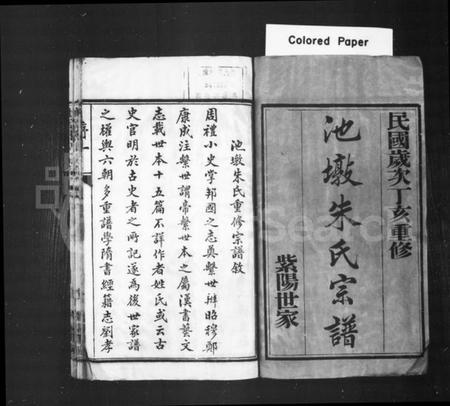 Colored Paper
民國歲次丁亥重修
池墩朱氏宗譜
紫陽世家
池墩朱氏重修宗譜敘
周禮小史掌邦國之志奠繫世辨昭穆鄭
康成注繫世謂帝繫世本之屬漢書藝文
志載世本十五篇不詳作者姓氏或云古
史官明於古史者之所記遂為後世家譜
之權輿六朝多重譜學隋書經籍志劉孝